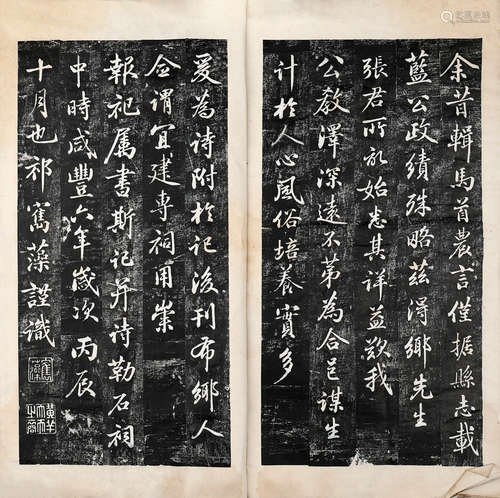 余昔輯馬首農言僅据縣志載
藍公政績殊略茲得鄉先生
張君所記始悉其詳益歎我
公教澤深遠不第為合邑謀生
計於人心風俗培養實多
爰為诗附於记後刊布鄉人
僉謂宜建專祠用崇
報祀属書斯记并诗勒石祠
中時咸豐六年歲次丙辰
十月也祁寯藻謹識
寯藻